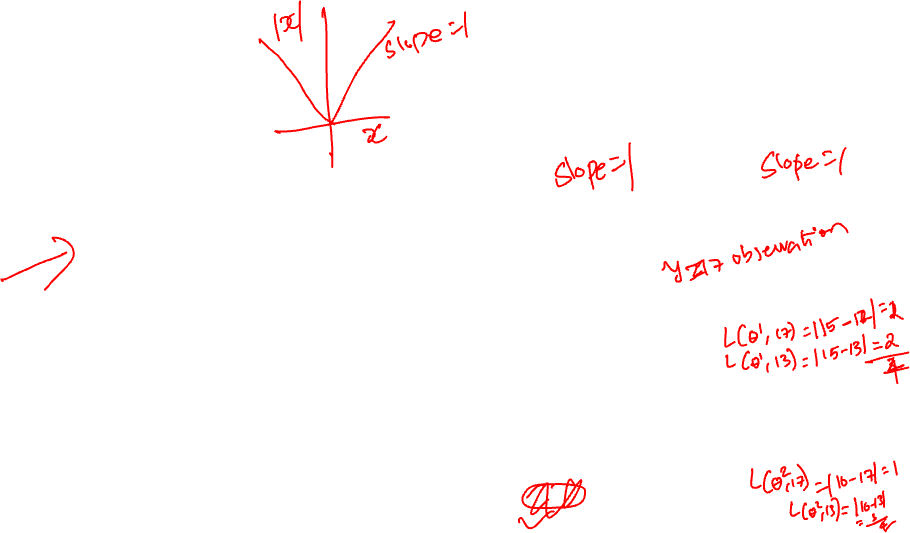 |x|
slope=1
x
Slope=1
Slope=1
y=17 observation
L(θ¹, 17) = |15-17| = 2
L(θ¹, 13) = |15-13| = 2
4
L(θ², 17) = |16-17| = 1
L(θ², 13) = |16-13|
= 3